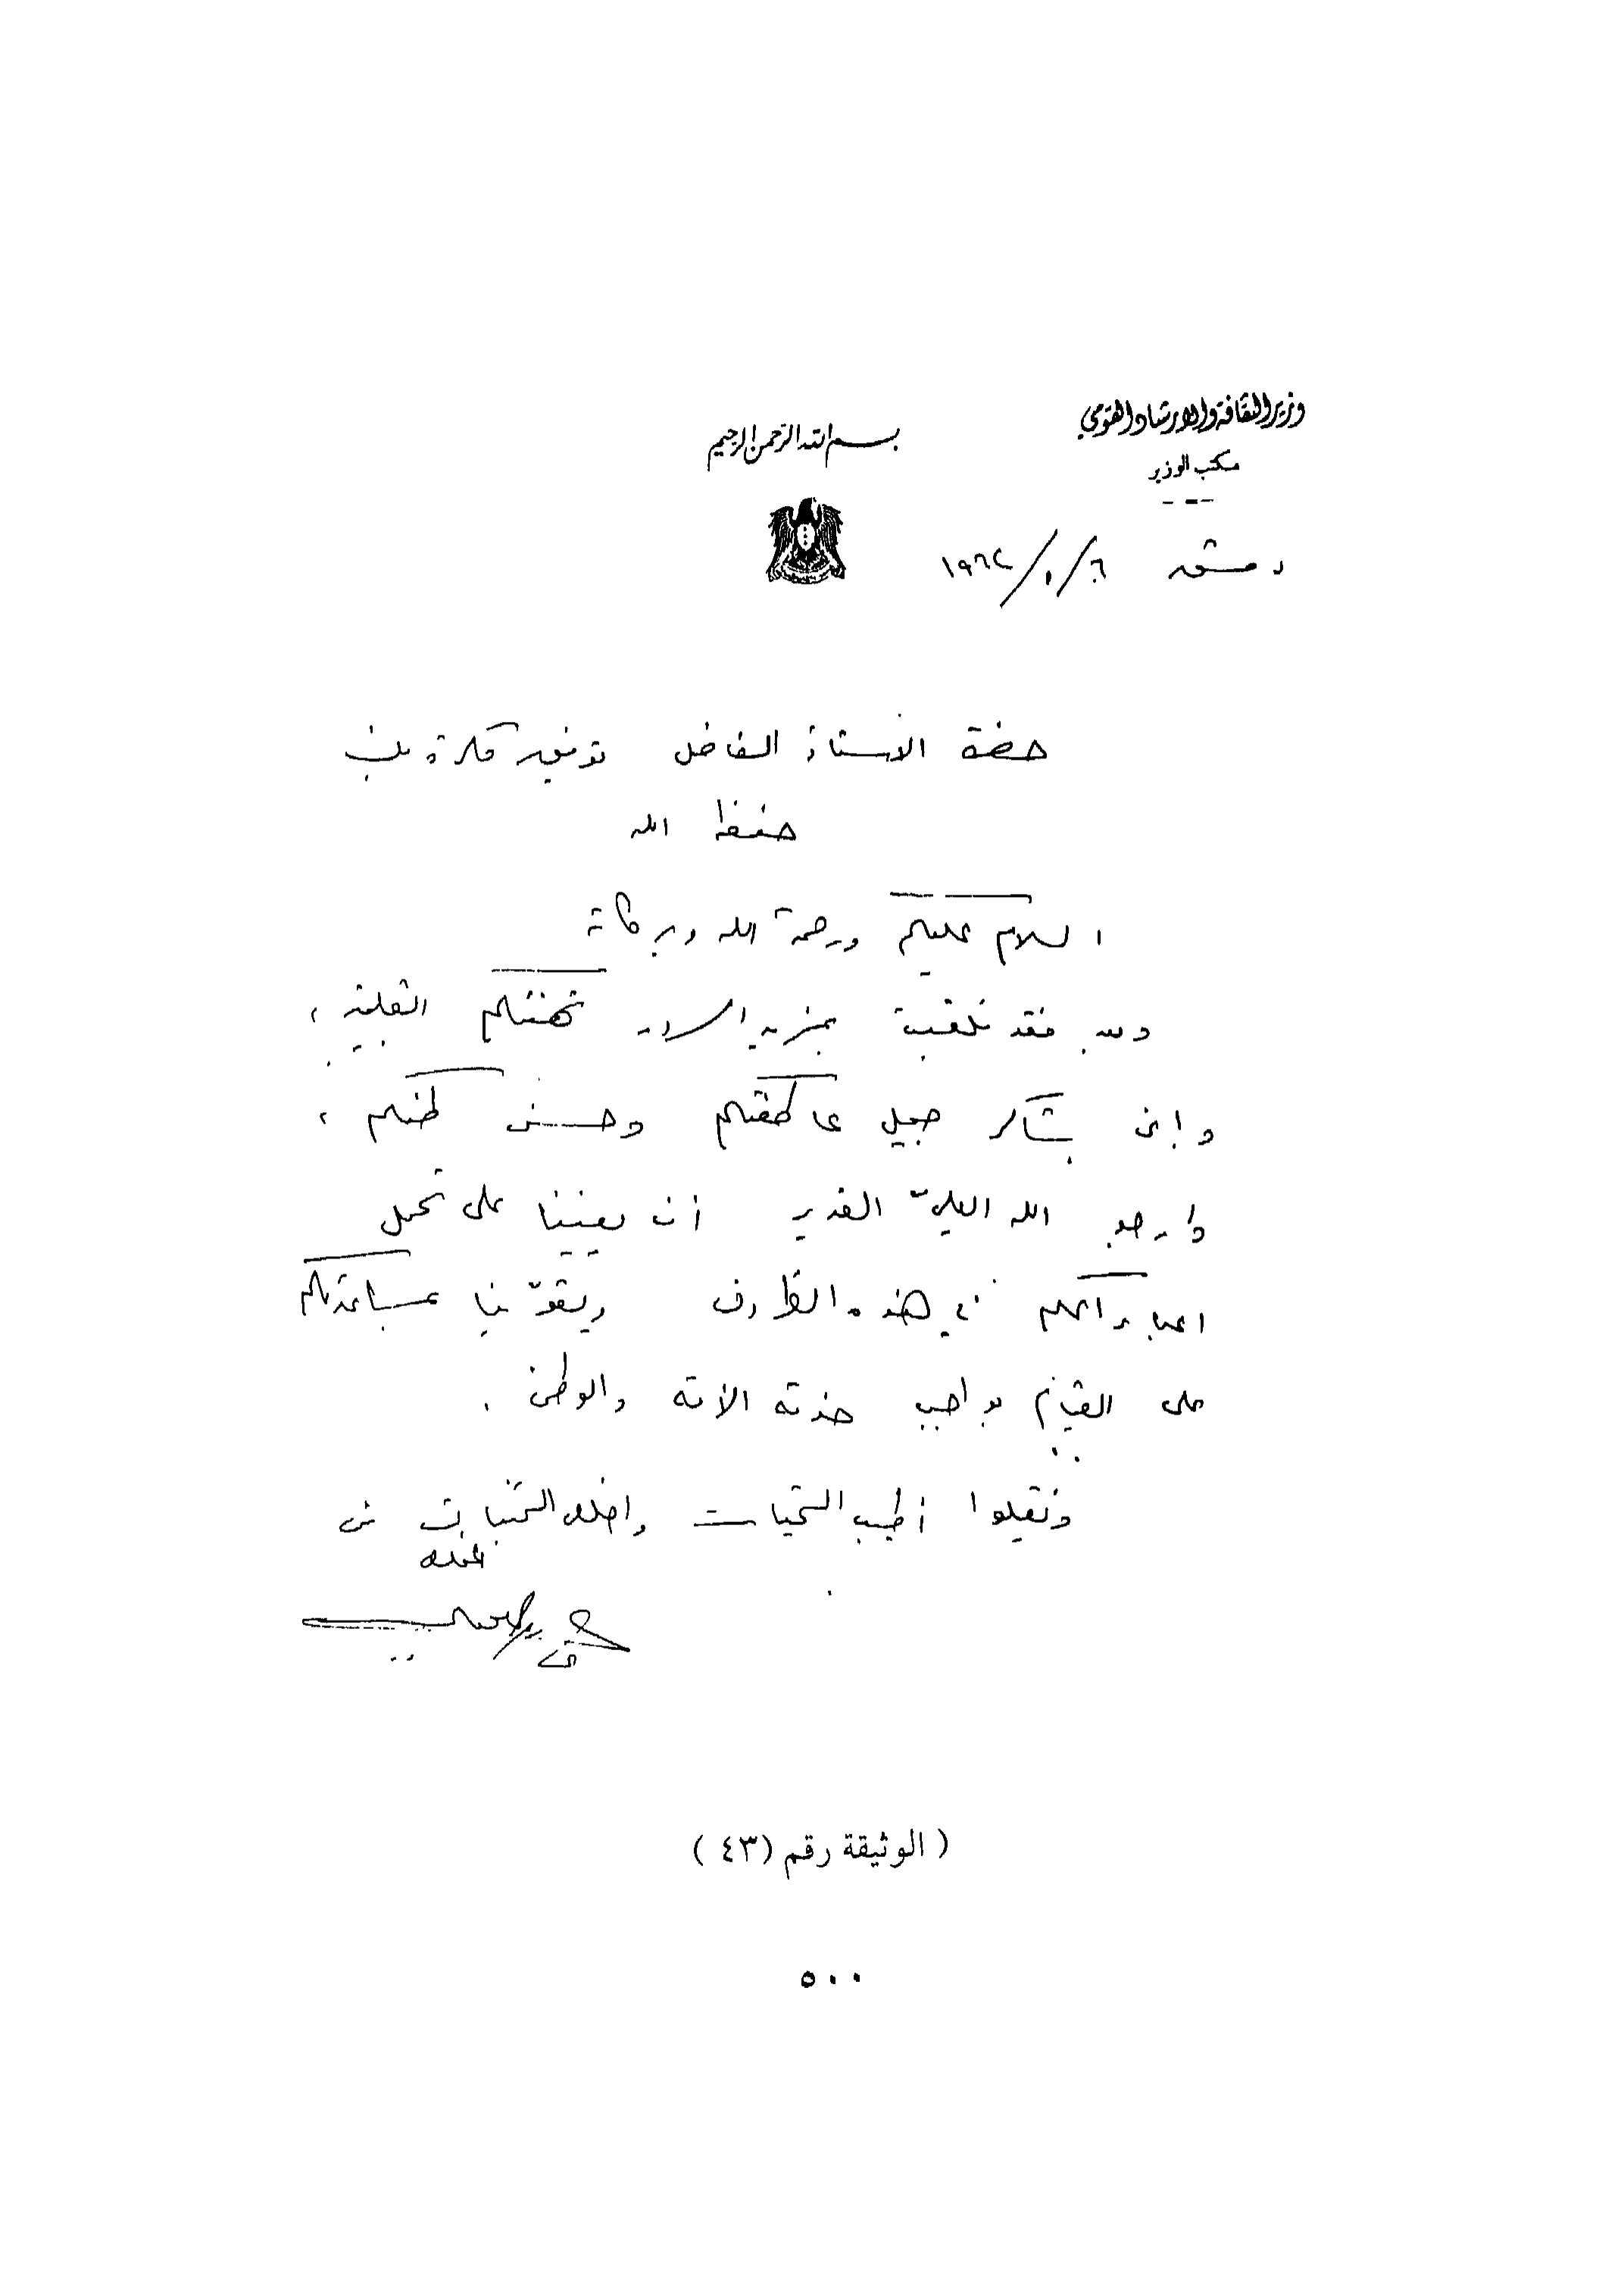 وزير الثقافة والإرشاد القومي
مكتب الوزير
بسم الله الرحمن الرحيم
دمشق ٦/١٠/١٩٦٢
حضرة الاستاذ الفاضل توفيق
حفظه الله
السلام عليكم ورحمة الله وبركاته
وبعد فقد تلقيت بمزيد السرور تهنئتكم القلبية ،
واني شاكر جميل عاطفتكم وحسن ظنكم ،
وارجو الله العليّ القدير أن يعيننا على تحمل
اعباء في هذه الظروف ويقوّينا بمساعدتكم
على القيام بواجب خدمة الأمة والوطن .
وتقبلوا أطيب التحيات واخلص التمنيات من
(الوثيقة رقم (٤٣)
٥٠٠